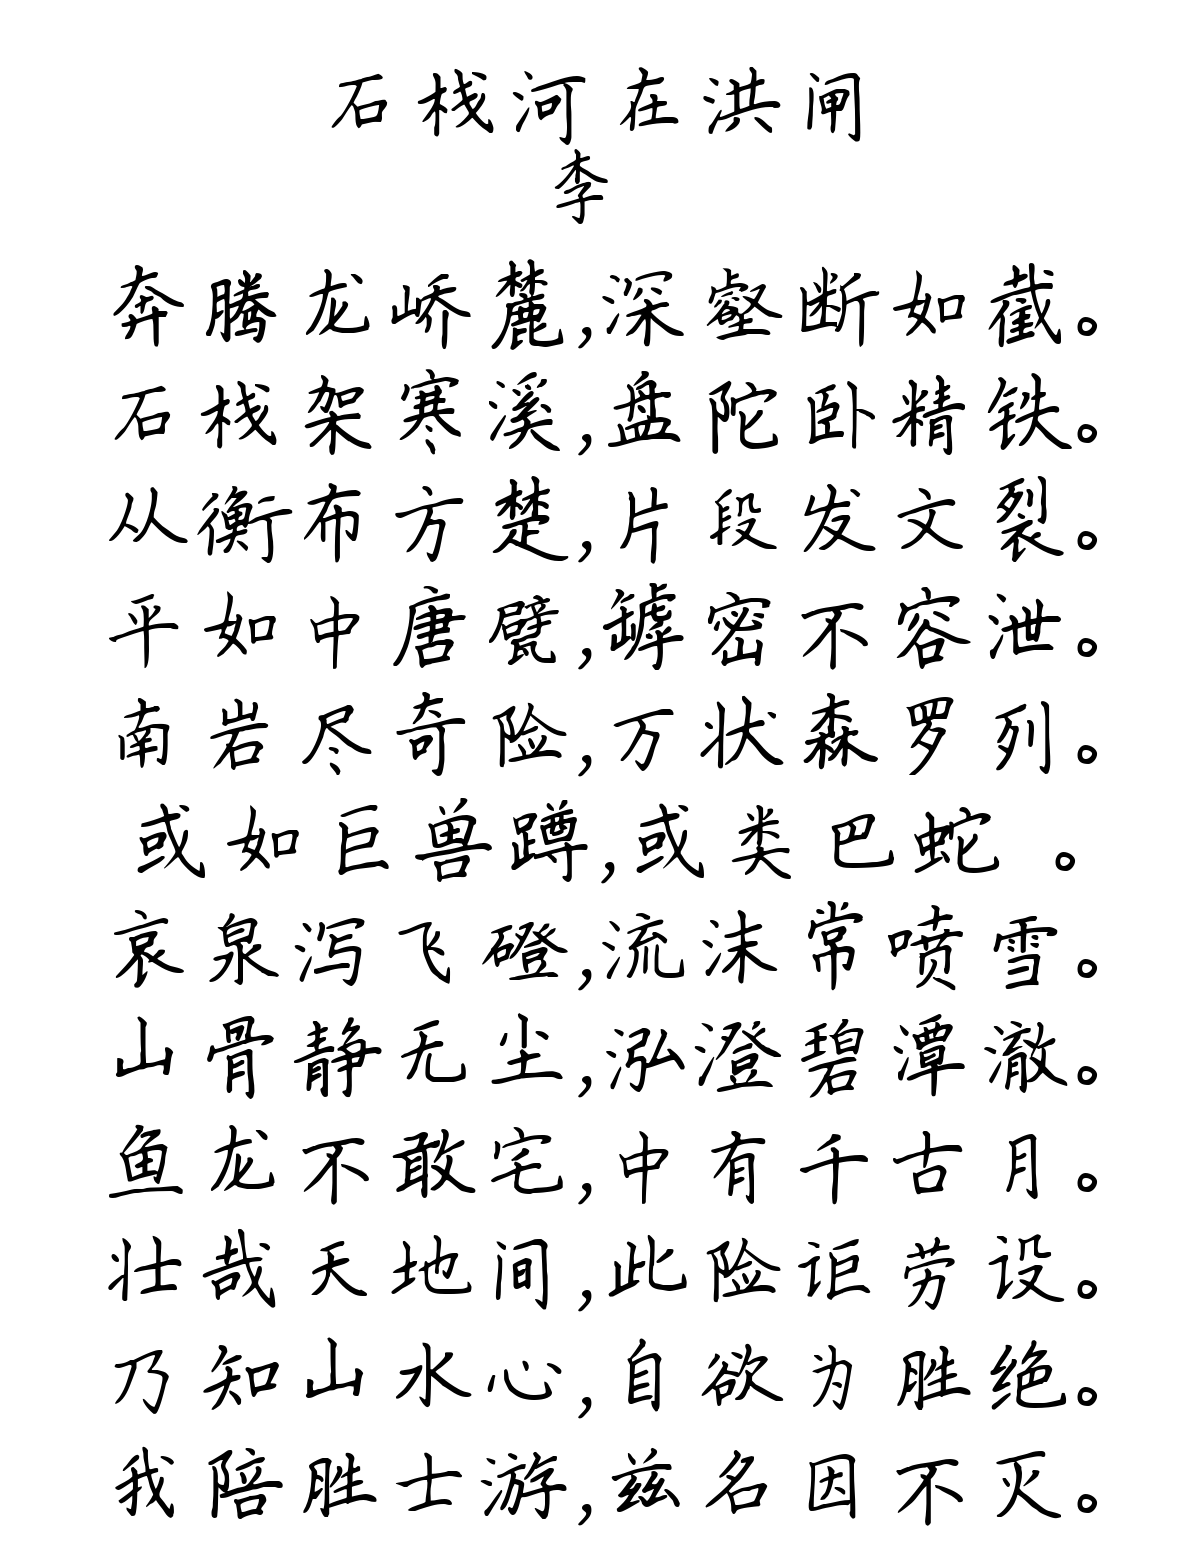 石栈河在洪闸
李
奔腾龙峤麓,深壑断如截。
石栈架寒溪,盘陀卧精铁。
从衡布方楚,片段发文裂。
平如中唐甓,罅密不容泄。
南岩尽奇险,万状森罗列。
或如巨兽蹲,或类巴蛇 。
哀泉泻飞磴,流沫常喷雪。
山骨静无尘,泓澄碧潭澈。
鱼龙不敢宅,中有千古月。
壮哉天地间,此险讵劳设。
乃知山水心,自欲为胜绝。
我陪胜士游,兹名因不灭。